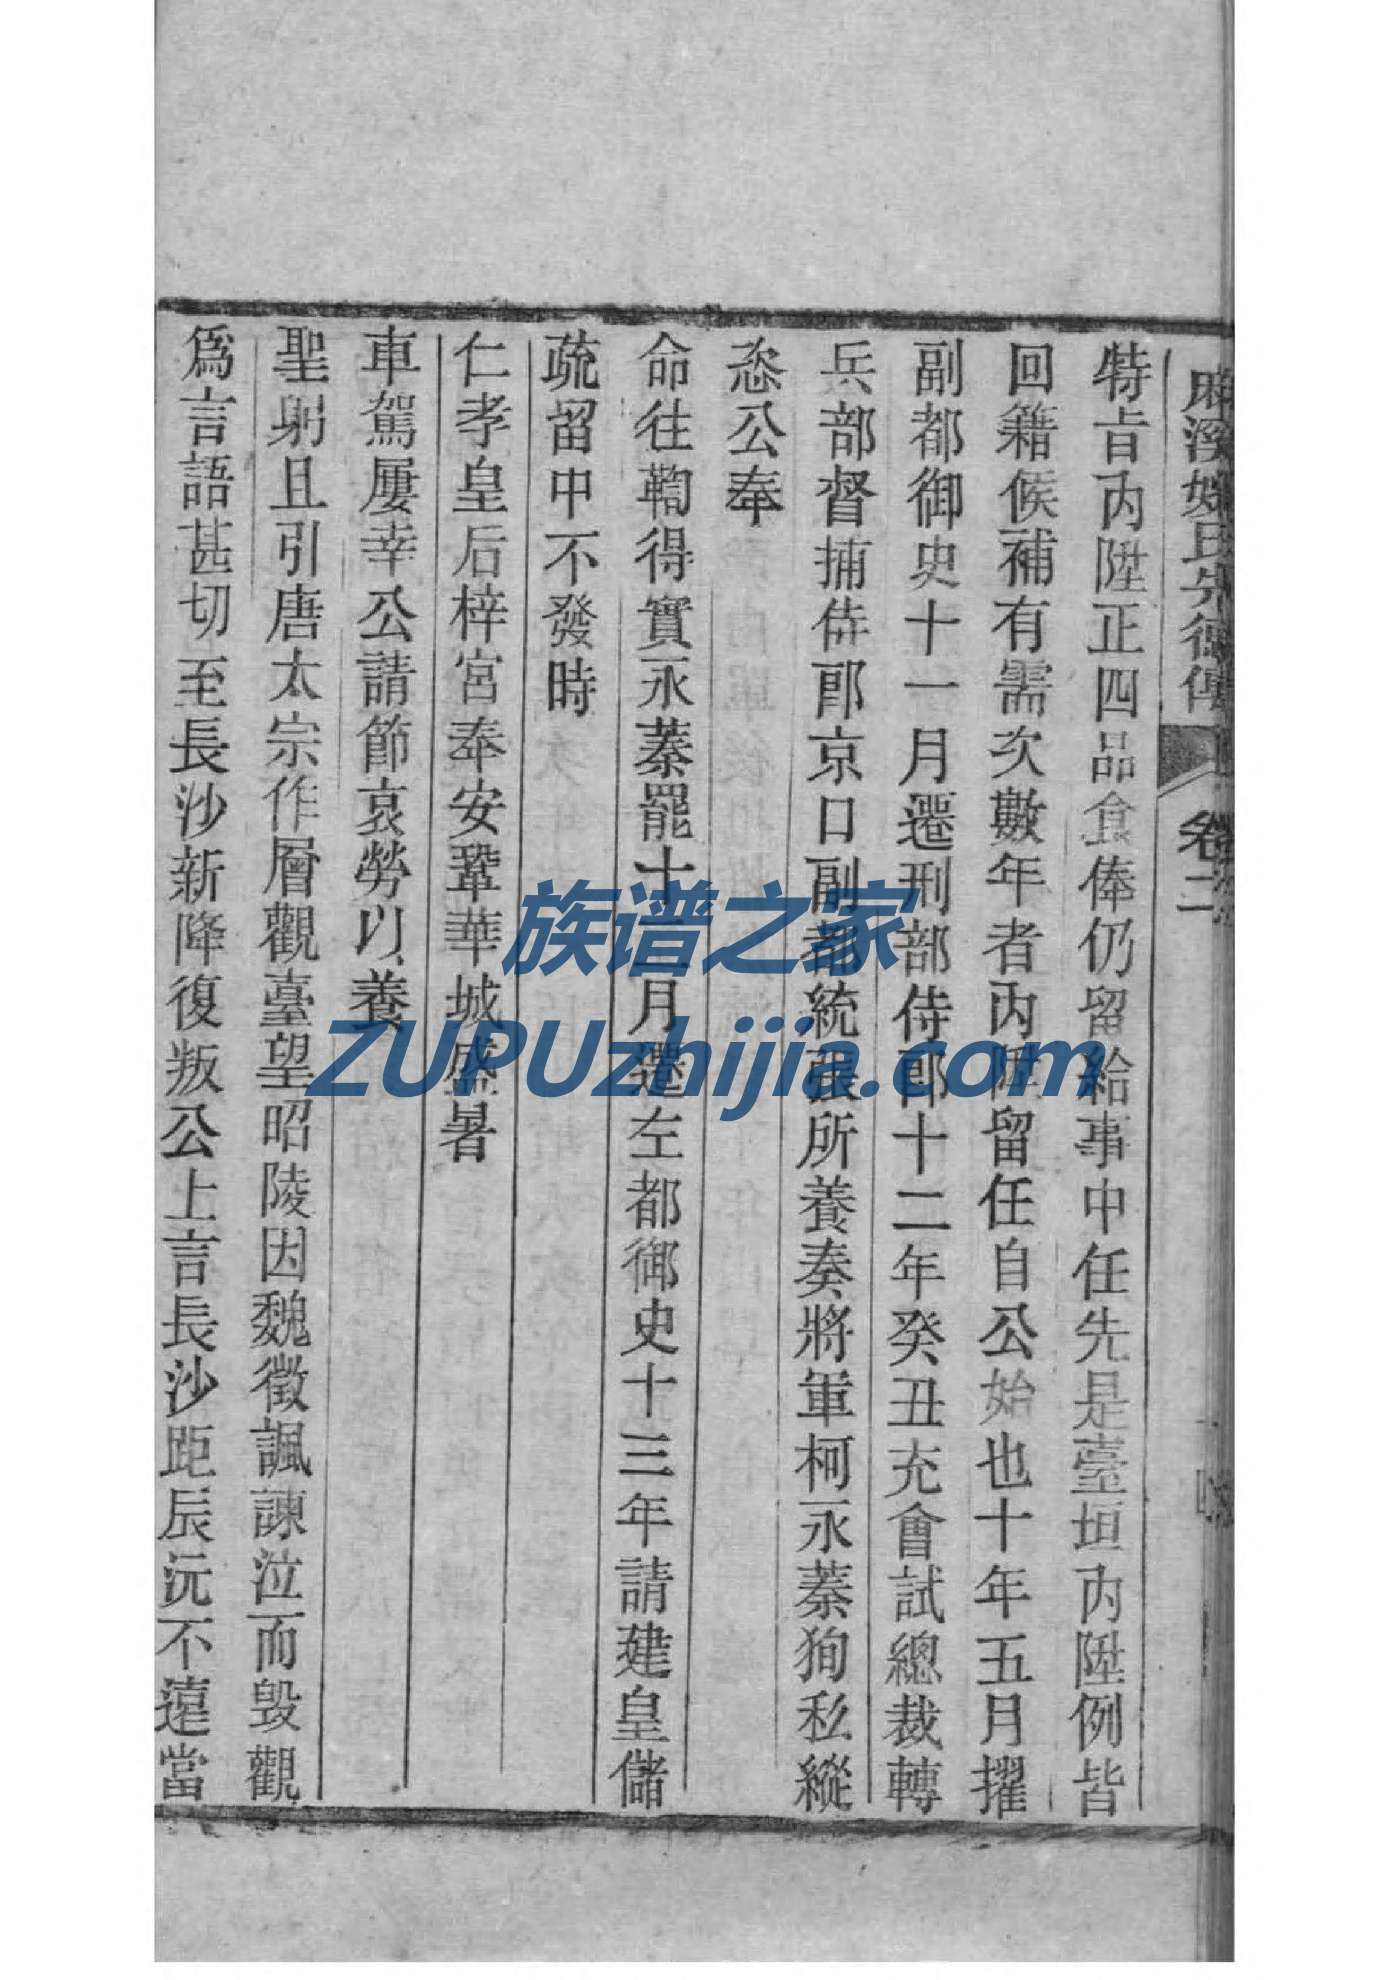 麻溪姚氏先德傳 卷二
特旨內陞正四品食俸仍留給事中任先是臺垣內陞例皆
回籍候補有需次數年者內陞留任自公始也十年五月擢
副都御史十一月遷刑部侍郎十二年癸丑充會試總裁轉
兵部督捕侍郎京口副都統張所養奏將軍柯永蓁狥私縱
恣公奉
命往鞫得實永蓁罷十二月遷左都御史十三年請建皇儲
疏留中不發時
仁孝皇后梓宮奉安鞏華城盛暑
車駕屢幸公請節哀勞以養
聖躬且引唐太宗作層觀臺望昭陵因魏徵諷諫泣而毀觀
爲言語甚切至長沙新降復叛公上言長沙距辰沅不遠當
族谱之家
ZUPUzhijia.com